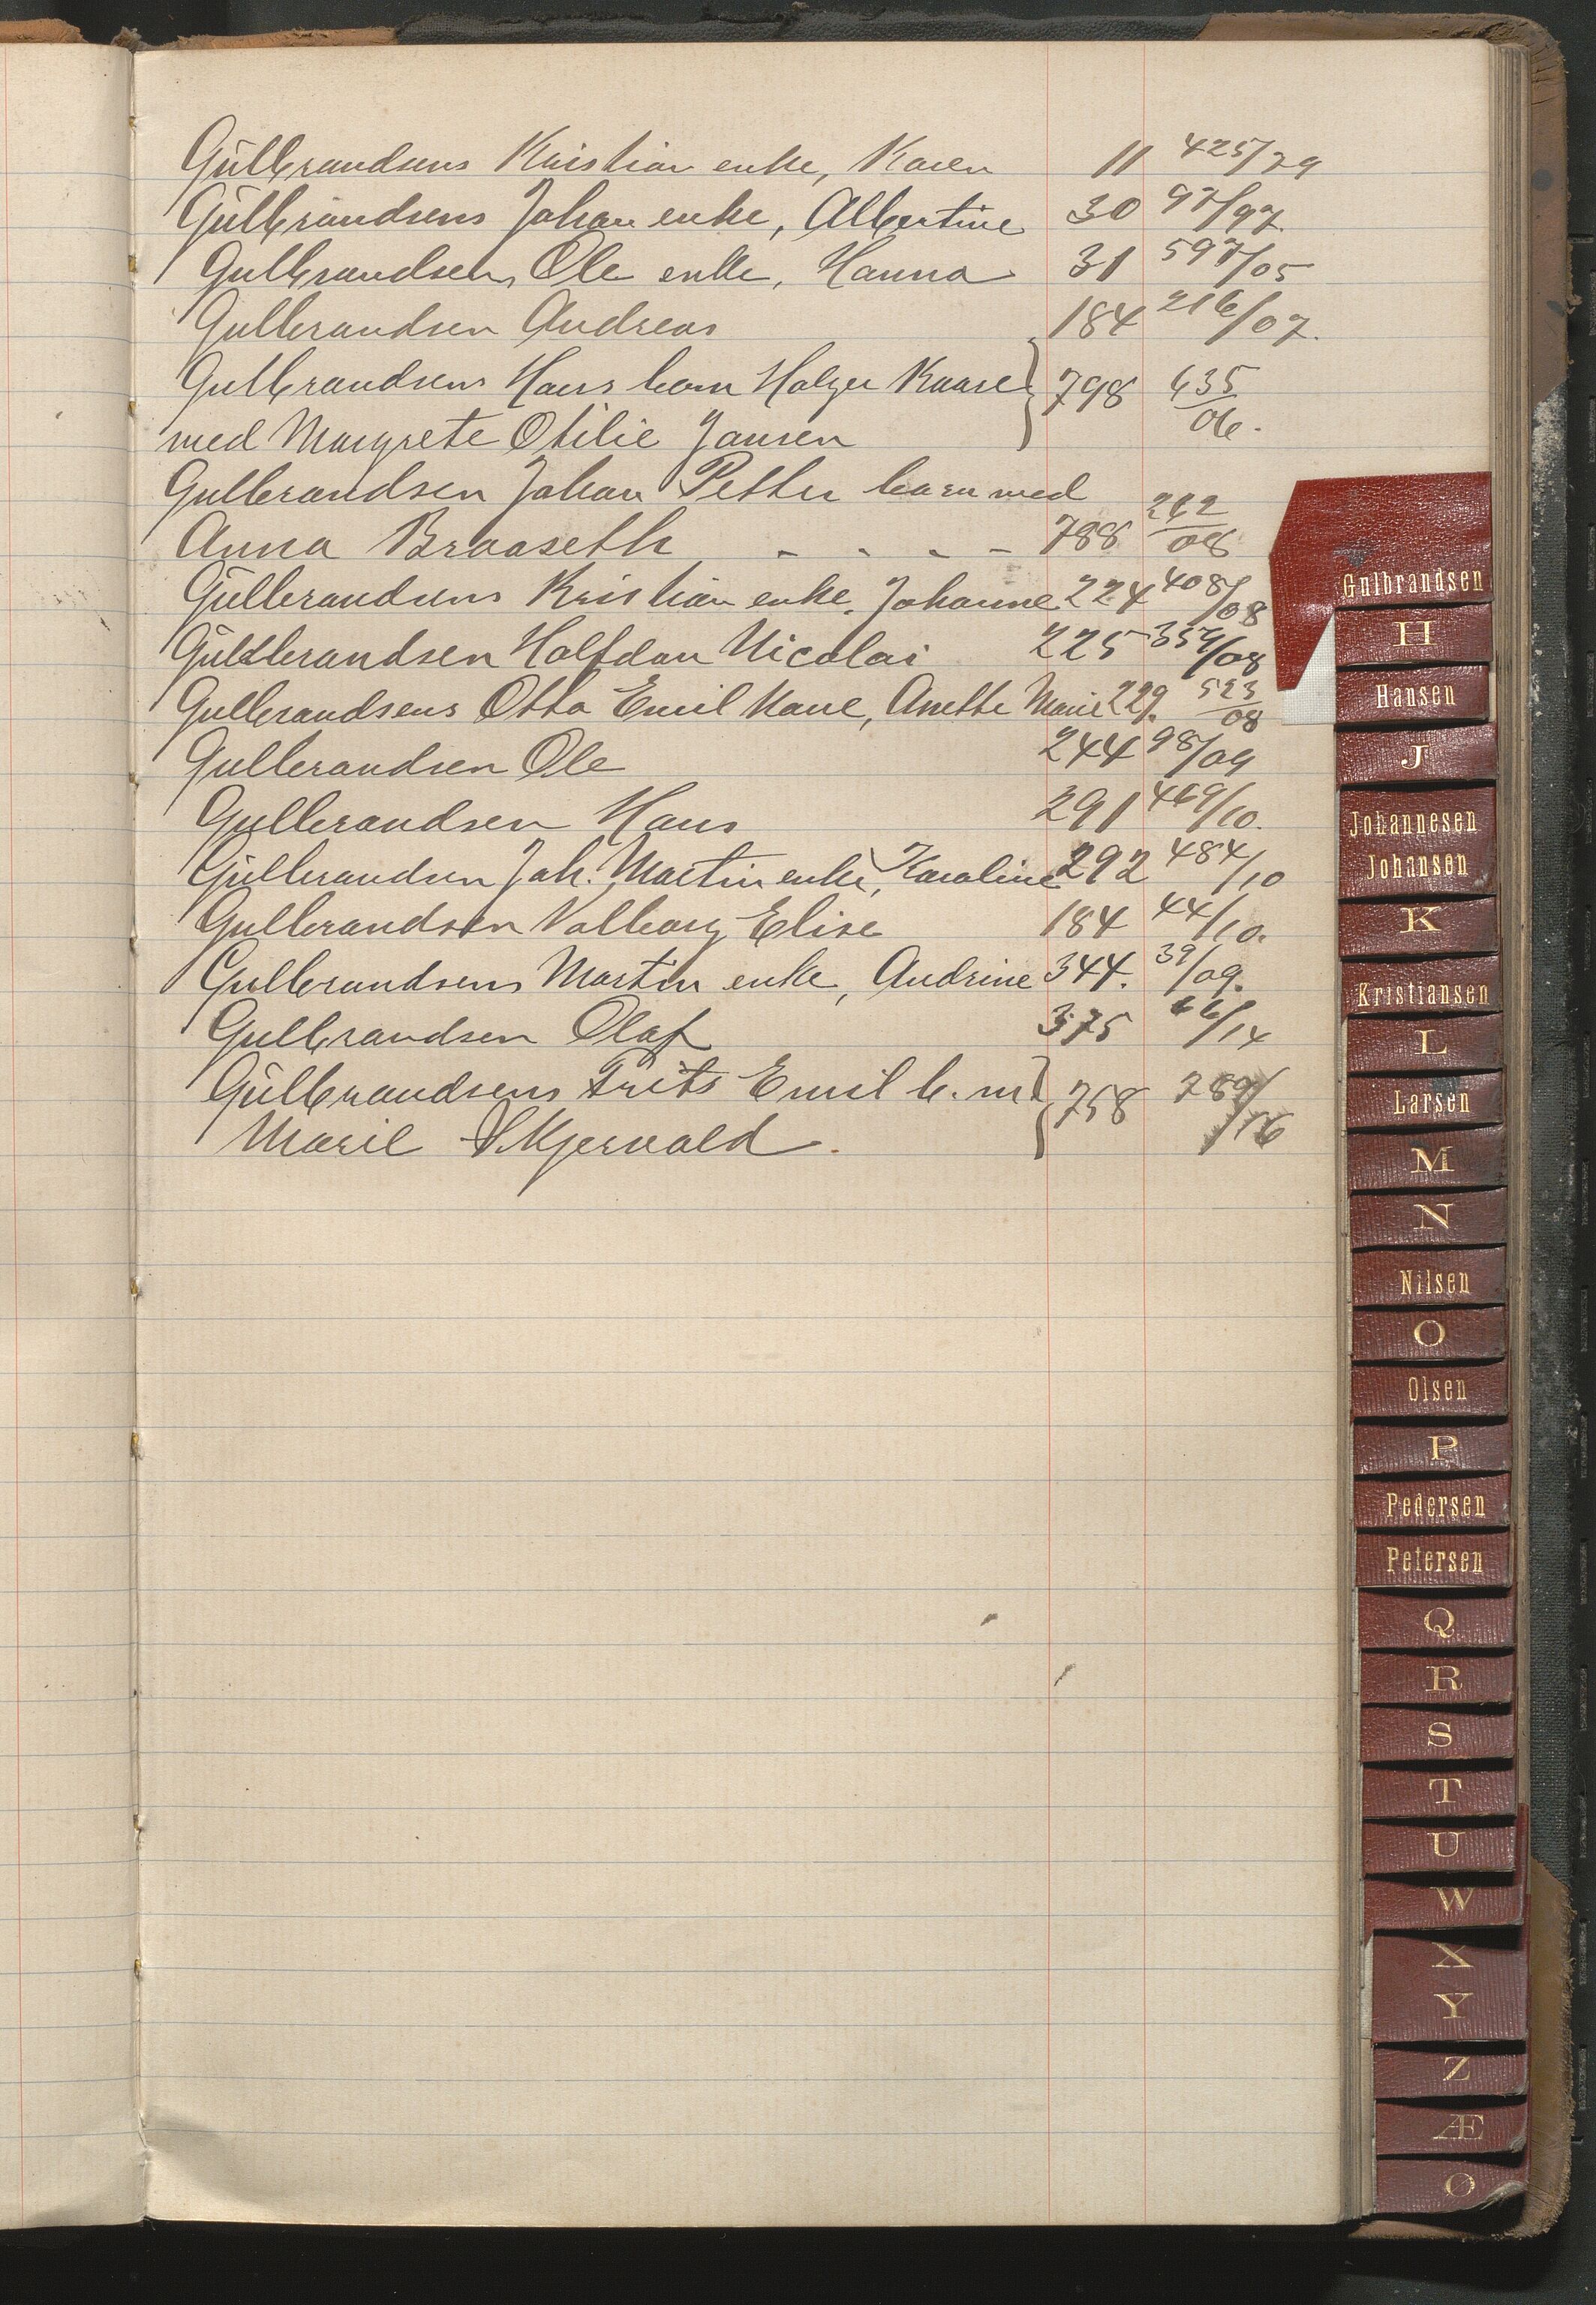 Gulbrandsens Kristian enke, Karen 11 425/79
Gulbrandsens Johan enke, Albertine 30 97/97.
Gulbrandsens Ole enke, Hanna 31 597/05
Gulbrandsen Andreas 184 216/07.
Gulbrandsens Hans barn Holger Kaare 798 635/06.
med Margrete Otilie Jansen
Gulbrandsen Johan Petter barn med
Anna Braaseth - - - - 788 242/08
Gulbrandsens Kristian enke, Johanne 224 408/08
Gulbrandsen Halfdan Nicolai 225 359/08
Gulbrandsens Otto Emil kone, Anette Marie 229. 523/08
Gulbrandsen Ole 244 98/09
Gulbrandsen Hans 291 469/10.
Gulbrandsen Joh. Martin enke, Karoline 292 484/10
Gulbrandsen Valborg Elise 184 44/10.
Gulbrandsens Martin enke, Andrine 344. 39/09.
Gulbrandsen Olaf 375 66/14
Gulbrandsens Frits Emil b. m. 758 289/16
Maril Skjervold.
Gulbrandsen
H
Hansen
J
Johannesen
Johansen
K
Kristiansen
L
Larsen
M
N
Nilsen
O
Olsen
P
Pedersen
Petersen
Q
R
S
T
U
W
X
Y
Z
Æ
Ø